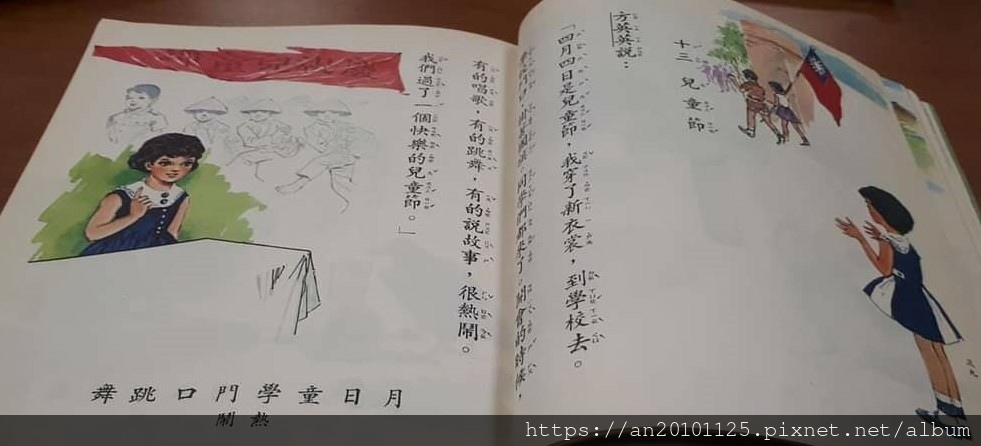 十三 兒童節
方英英說：
「四月四日是兒童節，我穿了新衣裳，到學校去。
同學們都來了，開會的時候，
有的唱歌，有的跳舞，有的說故事，很熱鬧。
我們過了一個快樂的兒童節。」
月日童學門口跳舞
熱鬧
三九
https://an20101125.pixnet.net/album